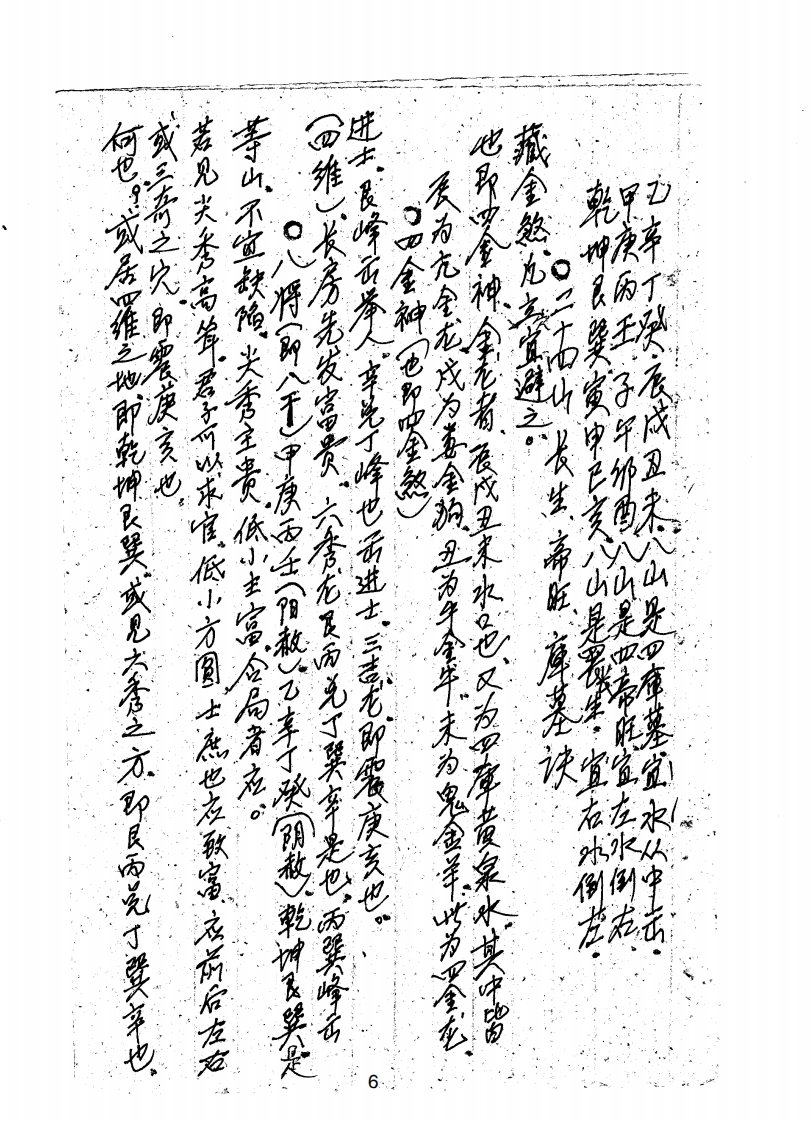 何也？或居四维之地即乾坤艮巽。或见六秀之方，即艮丙兑丁巽辛也。
或三奇之穴，即震庚亥也。
若见尖秀高耸，君子可以求官，低小方圆，士庶也应致富，应前后左右
等山，不宜缺陷，尖秀主贵，低小主富，合局者应。
○八将（即八干）甲庚丙壬（阳赦）乙辛丁癸（阴赦）乾坤艮巽是
（四维）、长房先发富贵。六秀龙艮丙兑丁巽辛是也。丙巽峰出
进士、艮峰出举人、辛兑丁峰也出进士。三吉龙即震庚亥也。
○四金神（也即四金煞）
辰为亢金龙，戌为娄金狗，丑为牛金牛，未为鬼金羊，此为四金龙，
也即四金神，金龙者，辰戌丑未水口也，又为四库黄泉水，其中皆
藏金煞，凡立宜避之。
○二十四山长生、帝旺、库墓诀
乾坤艮巽寅申巳亥八山是长生，宜右水倒左。
甲庚丙壬子午卯酉八山是四帝旺，宜左水倒右
乙辛丁癸辰戌丑未八山是四库墓宜水从中出。
6